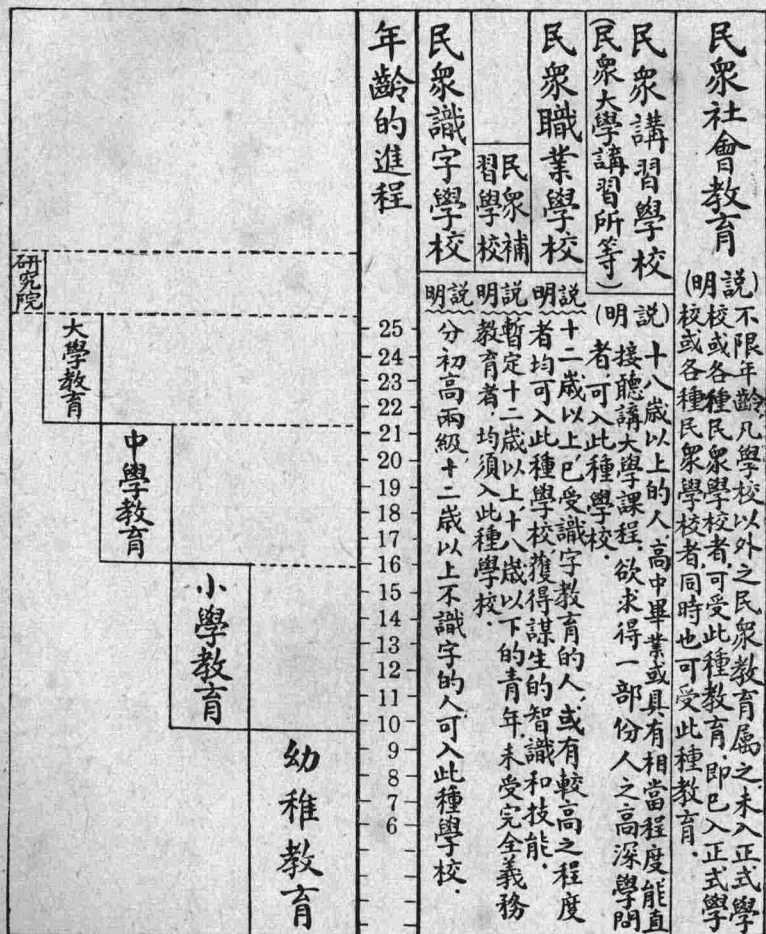 民眾社會教育
(說明)不限年齡,凡學校以外之民眾教育屬之,未入正式學
校或各種民眾學校者,可受此種教育,即已入正式學
校或各種民眾學校者,同時也可受此種教育.
民眾講習學校
(民眾大學講習所等)
(說明)十八歲以上的人,高中畢業或具有相當程度能直
接聽講大學課程,欲求得一部份人之高深學問
者,可入此種學校.
民眾職業學校
說明
十二歲以上,已受識字教育的人,或有較高之程度
者均可入此種學校,獲得謀生的智識和技能.
民眾補
習學校
說明
暫定十二歲以上,十八歲以下的青年,未受完全義務
教育者,均須入此種學校.
民眾識字學校
說明
分初高兩級,十二歲以上不識字的人可入此種學校.
年齡的進程
25
24
23
22
21
20
19
18
17
16
15
14
13
12
11
10
9
8
7
6
幼稚教育
小學教育
中學教育
大學教育
研究院